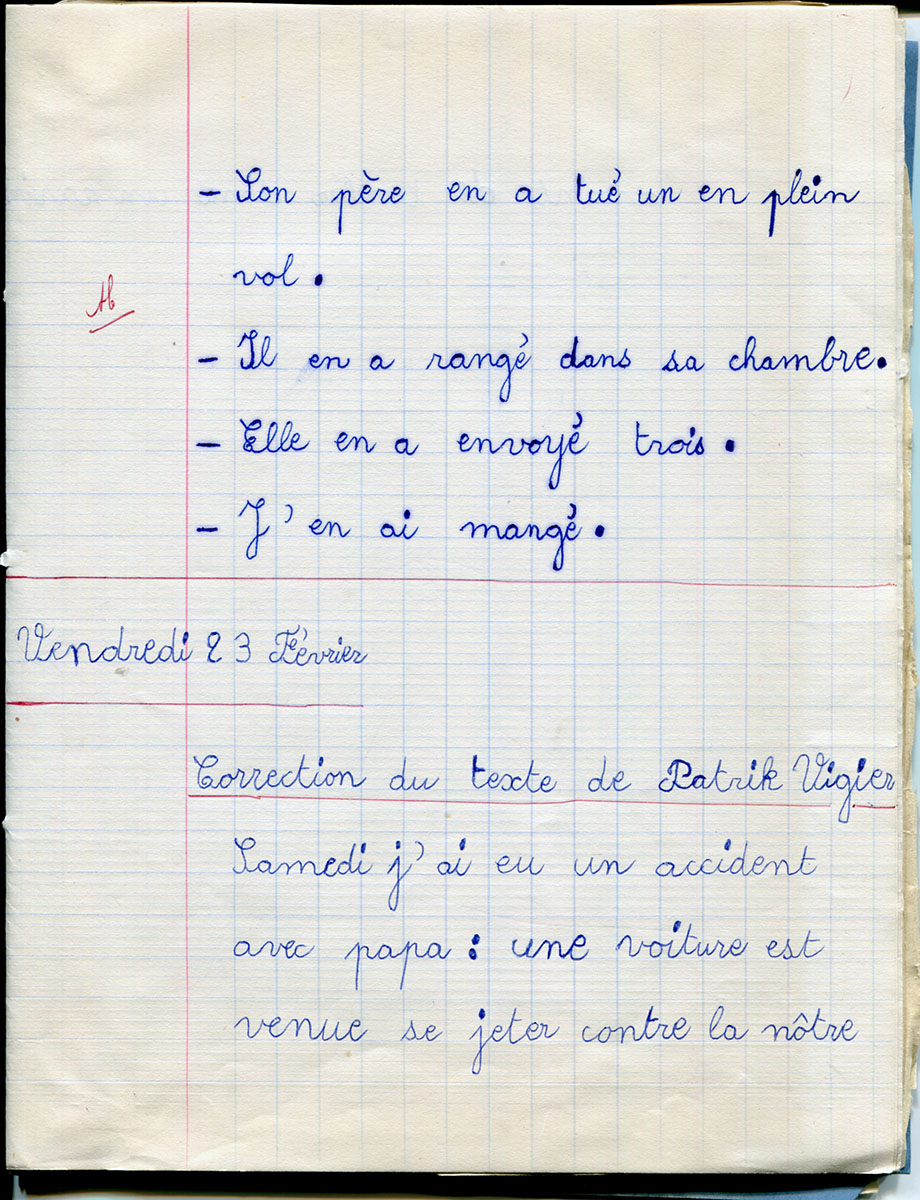 - Son père en a tué un en plein
vol.
Tb
- Il en a rangé dans sa chambre.
- Elle en a envoyé trois.
- J'en ai mangé.
Vendredi 23 Février
Correction du texte de Patrik Vigier
Samedi j'ai eu un accident
avec papa : une voiture est
venue se jeter contre la nôtre